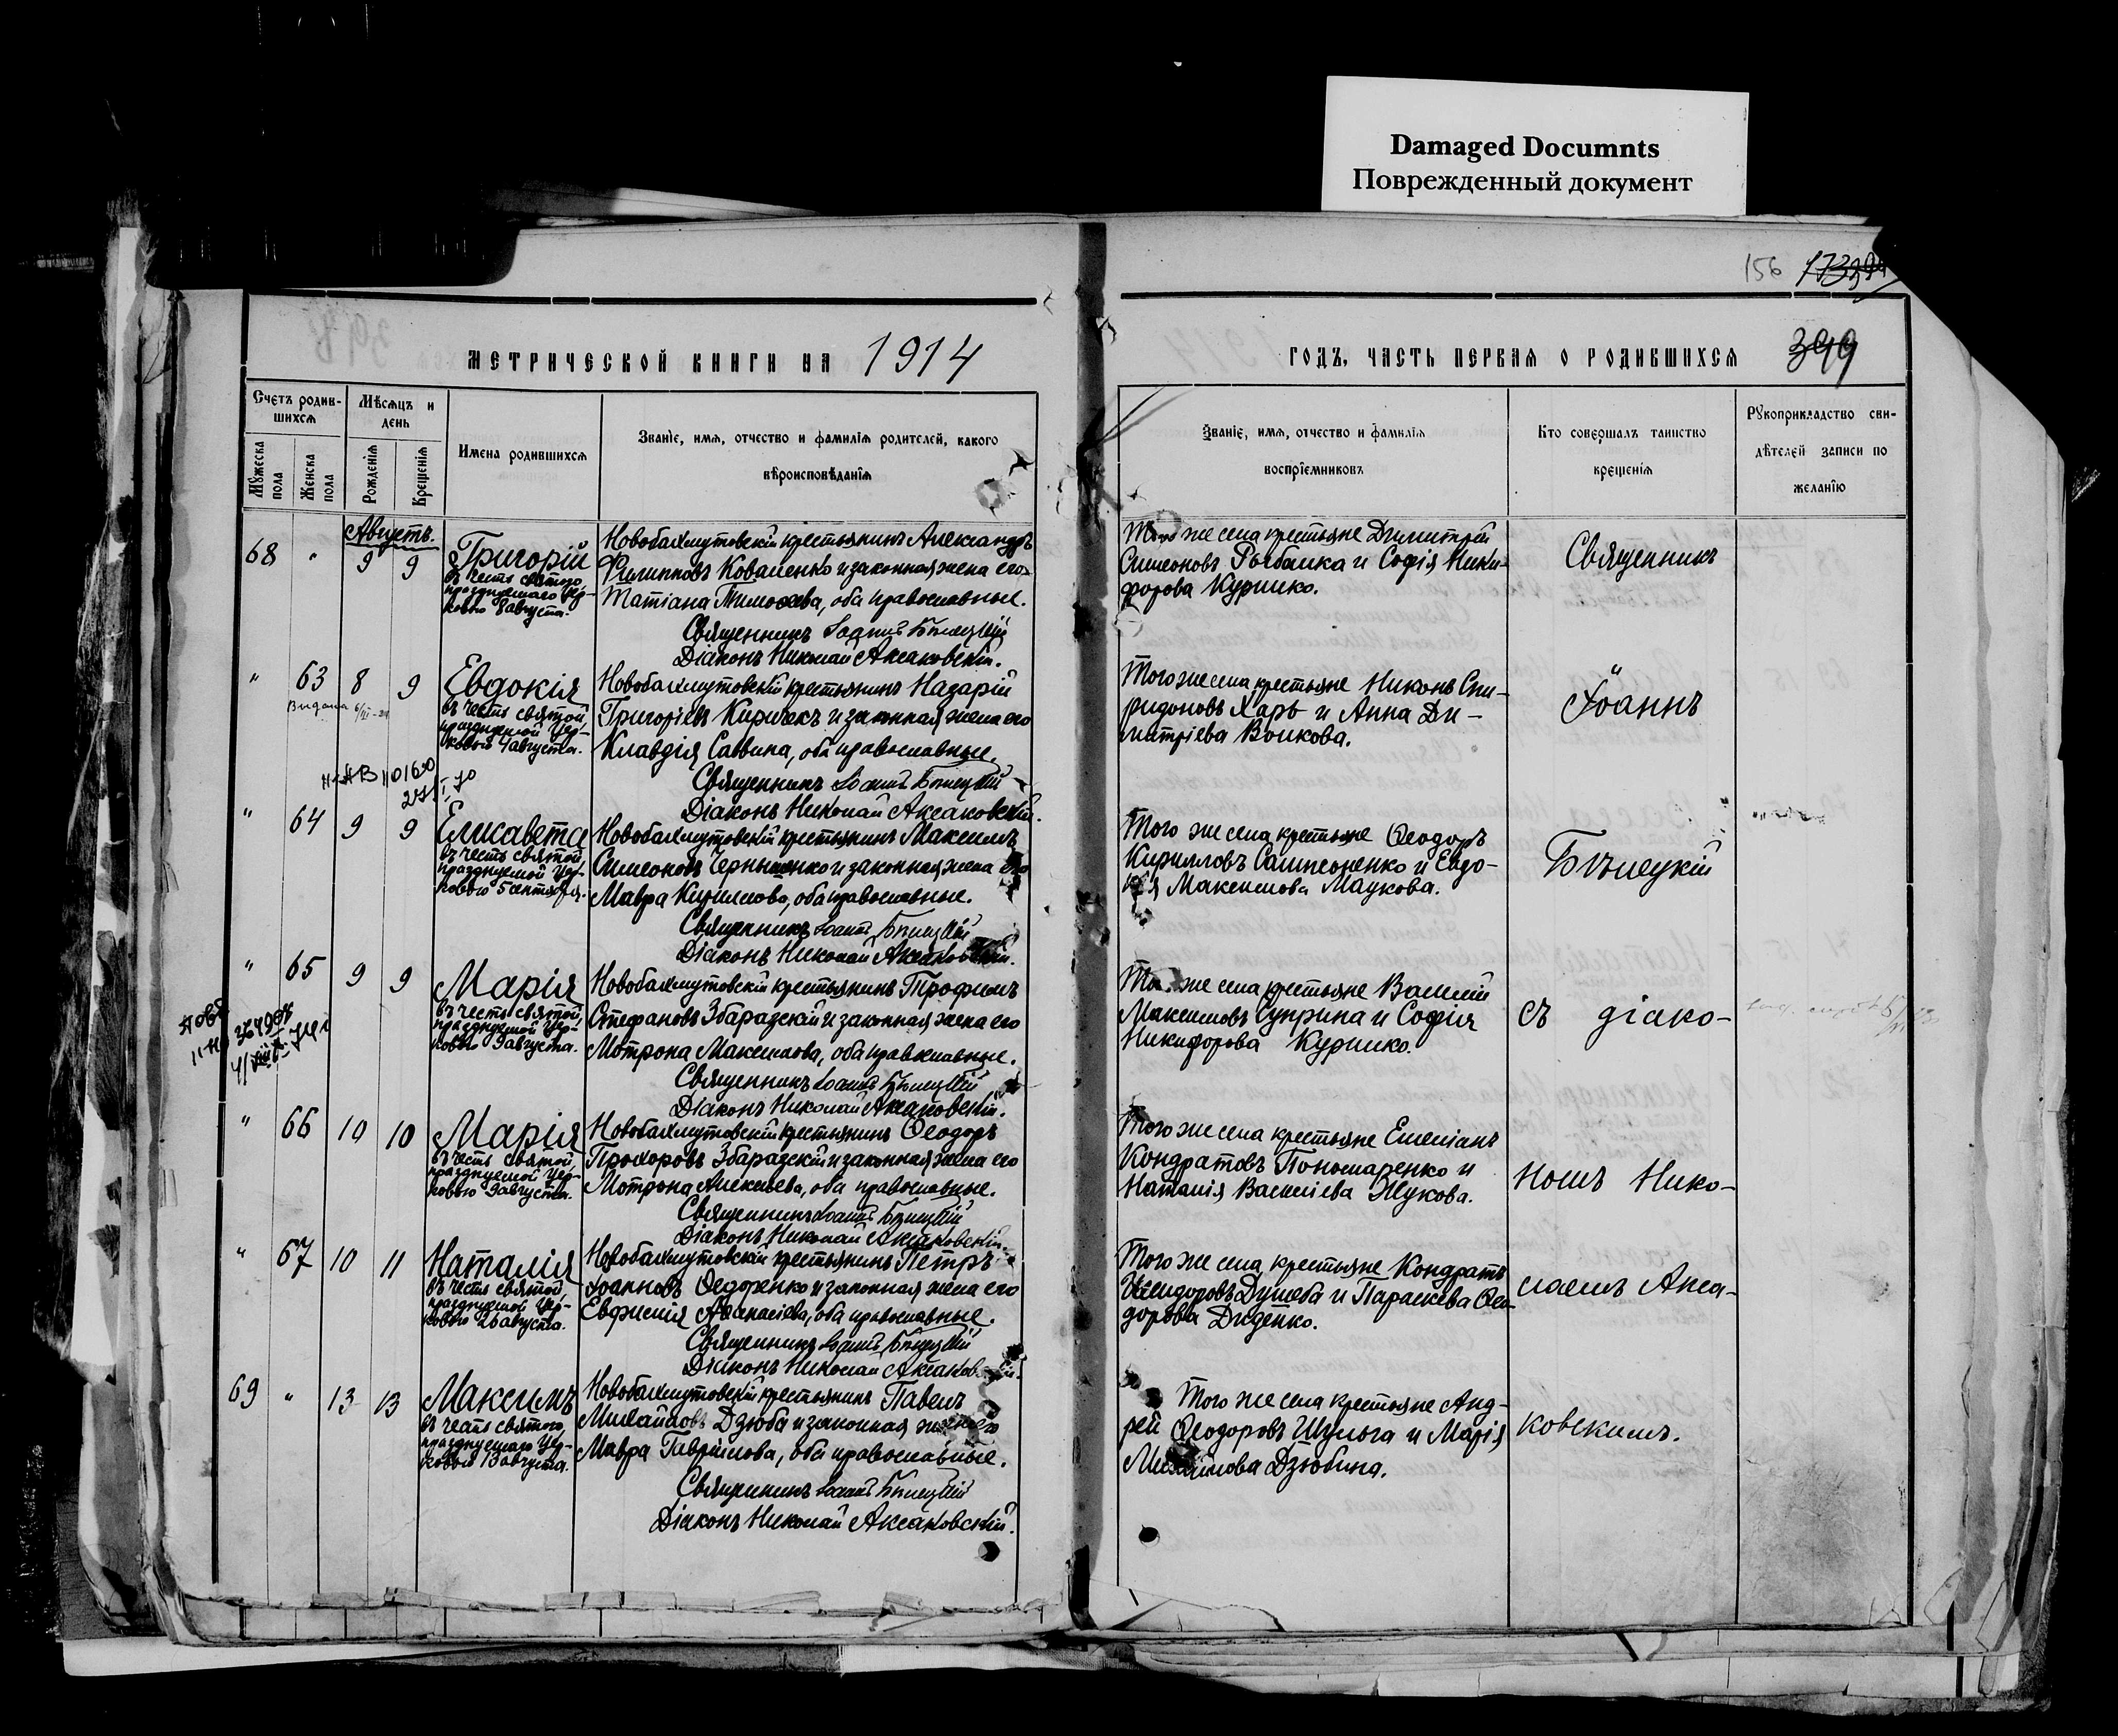 Damaged Documnts
Поврежденный документ
156
399
МЕТРИЧЕСКОЙ КНИГИ НА 1914
ГОДЪ, ЧАСТЬ ПЕРВАЯ О РОДИВШИХСЯ
Счетъ родив-
шихся
Мѣсяцъ и
день
Мужеска
пола
Женска
пола
Рожденія
Крещенія
Имена родившихся
Званіе, имя, отчество и фамилія родителей, какого
вѣроисповѣданія
Званіе, имя, отчество и фамилія
воспріемниковъ
Кто совершалъ таинство
крещенія
Рукоприкладство сви-
дѣтелей записи по
желанію
Августъ.
68 " 9 9
Григорій
въ честь святого,
празднуемаго Цер-
ковью 8 августа.
Новобахмутовскій крестьянинъ Александръ
Филипповъ Коваленко и законная жена его
Татіана Тимоѳеева, оба православные.
Священникъ Іоаннъ Бѣлецкій
Діаконъ Николай Аксаковскій.
Того же села крестьяне Димитрій
Симеоновъ Рыбалка и Софія Ники-
форова Курилко.
" 63 8 9
Видана
Евдокія
въ честь святой,
празднуемой Цер-
ковью 4 августа.
Новобахмутовскій крестьянинъ Назарій
Григоріевъ Киричекъ и законная жена его
Клавдія Саввина, оба православные.
Священникъ Іоаннъ Бѣлецкій
Діаконъ Николай Аксаковскій.
Того же села крестьяне Никонъ Спи-
ридоновъ Харь и Анна Ди-
митріева Волкова.
" 64 9 9
Елисавета
въ честь святой,
празднуемой Цер-
ковью 5 сентября.
Новобахмутовскій крестьянинъ Максимъ
Симеоновъ Чернышенко и законная жена его
Мавра Кириллова, оба православные.
Священникъ Іоаннъ Бѣлецкій
Діаконъ Николай Аксаковскій.
Того же села крестьяне Ѳеодоръ
Кирилловъ Сампсоненко и Евдо-
кія Максимова Маукова.
" 65 9 9
Марія
въ честь святой,
празднуемой Цер-
ковью 9 августа.
Новобахмутовскій крестьянинъ Трофимъ
Стефановъ Збаразскій и законная жена его
Мотрона Максимова, оба православные.
Священникъ Іоаннъ Бѣлецкій
Діаконъ Николай Аксаковскій.
Того же села крестьяне Василій
Максимовъ Суприна и Софія
Никифорова Курилко.
" 66 10 10
Марія
въ честь святой,
празднуемой Цер-
ковью 9 августа.
Новобахмутовскій крестьянинъ Ѳеодоръ
Прохоровъ Збаразскій и законная жена его
Мотрона Алексіева, оба православные.
Священникъ Іоаннъ Бѣлецкій
Діаконъ Николай Аксаковскій.
Того же села крестьяне Емеліанъ
Кондратовъ Пономаренко и
Наталія Василіева Жукова.
" 67 10 11
Наталія
въ честь святой,
празднуемой Цер-
ковью 26 августа.
Новобахмутовскій крестьянинъ Петръ
Іоанновъ Ѳедоренко и законная жена его
Евфимія Аѳанасіева, оба православные.
Священникъ Іоаннъ Бѣлецкій
Діаконъ Николай Аксаковскій.
Того же села крестьяне Кондратъ
Исидоровъ Дулеба и Параскева Ѳео-
дорова Диденко.
69 " 13 13
Максимъ
въ честь святого,
празднуемаго Цер-
ковью 13 августа.
Новобахмутовскій крестьянинъ Павелъ
Михайловъ Дзюба и законная жена его
Мавра Гавріилова, оба православные.
Священникъ Іоаннъ Бѣлецкій
Діаконъ Николай Аксаковскій.
Того же села крестьяне Анд-
рей Ѳеодоровъ Шульга и Марія
Михайлова Дзюбина.
Священникъ
Іоаннъ
Бѣлецкій
съ діако-
номъ Нико-
лаемъ Акса-
ковскимъ.